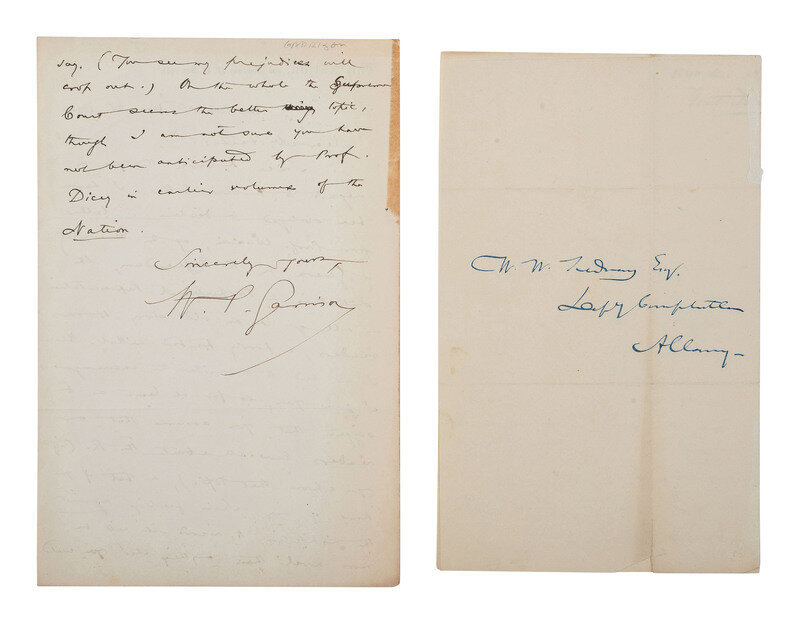 GARRISON
say. (You see my prejudices will
crop out.) On the whole the Supreme
Court seems the better topic,
though I am not sure you have
not been anticipated by Prof.
Dicey in earlier volumes of the
Nation.
Sincerely yours,
W. P. Garrison
W. W. Esq.
Albany